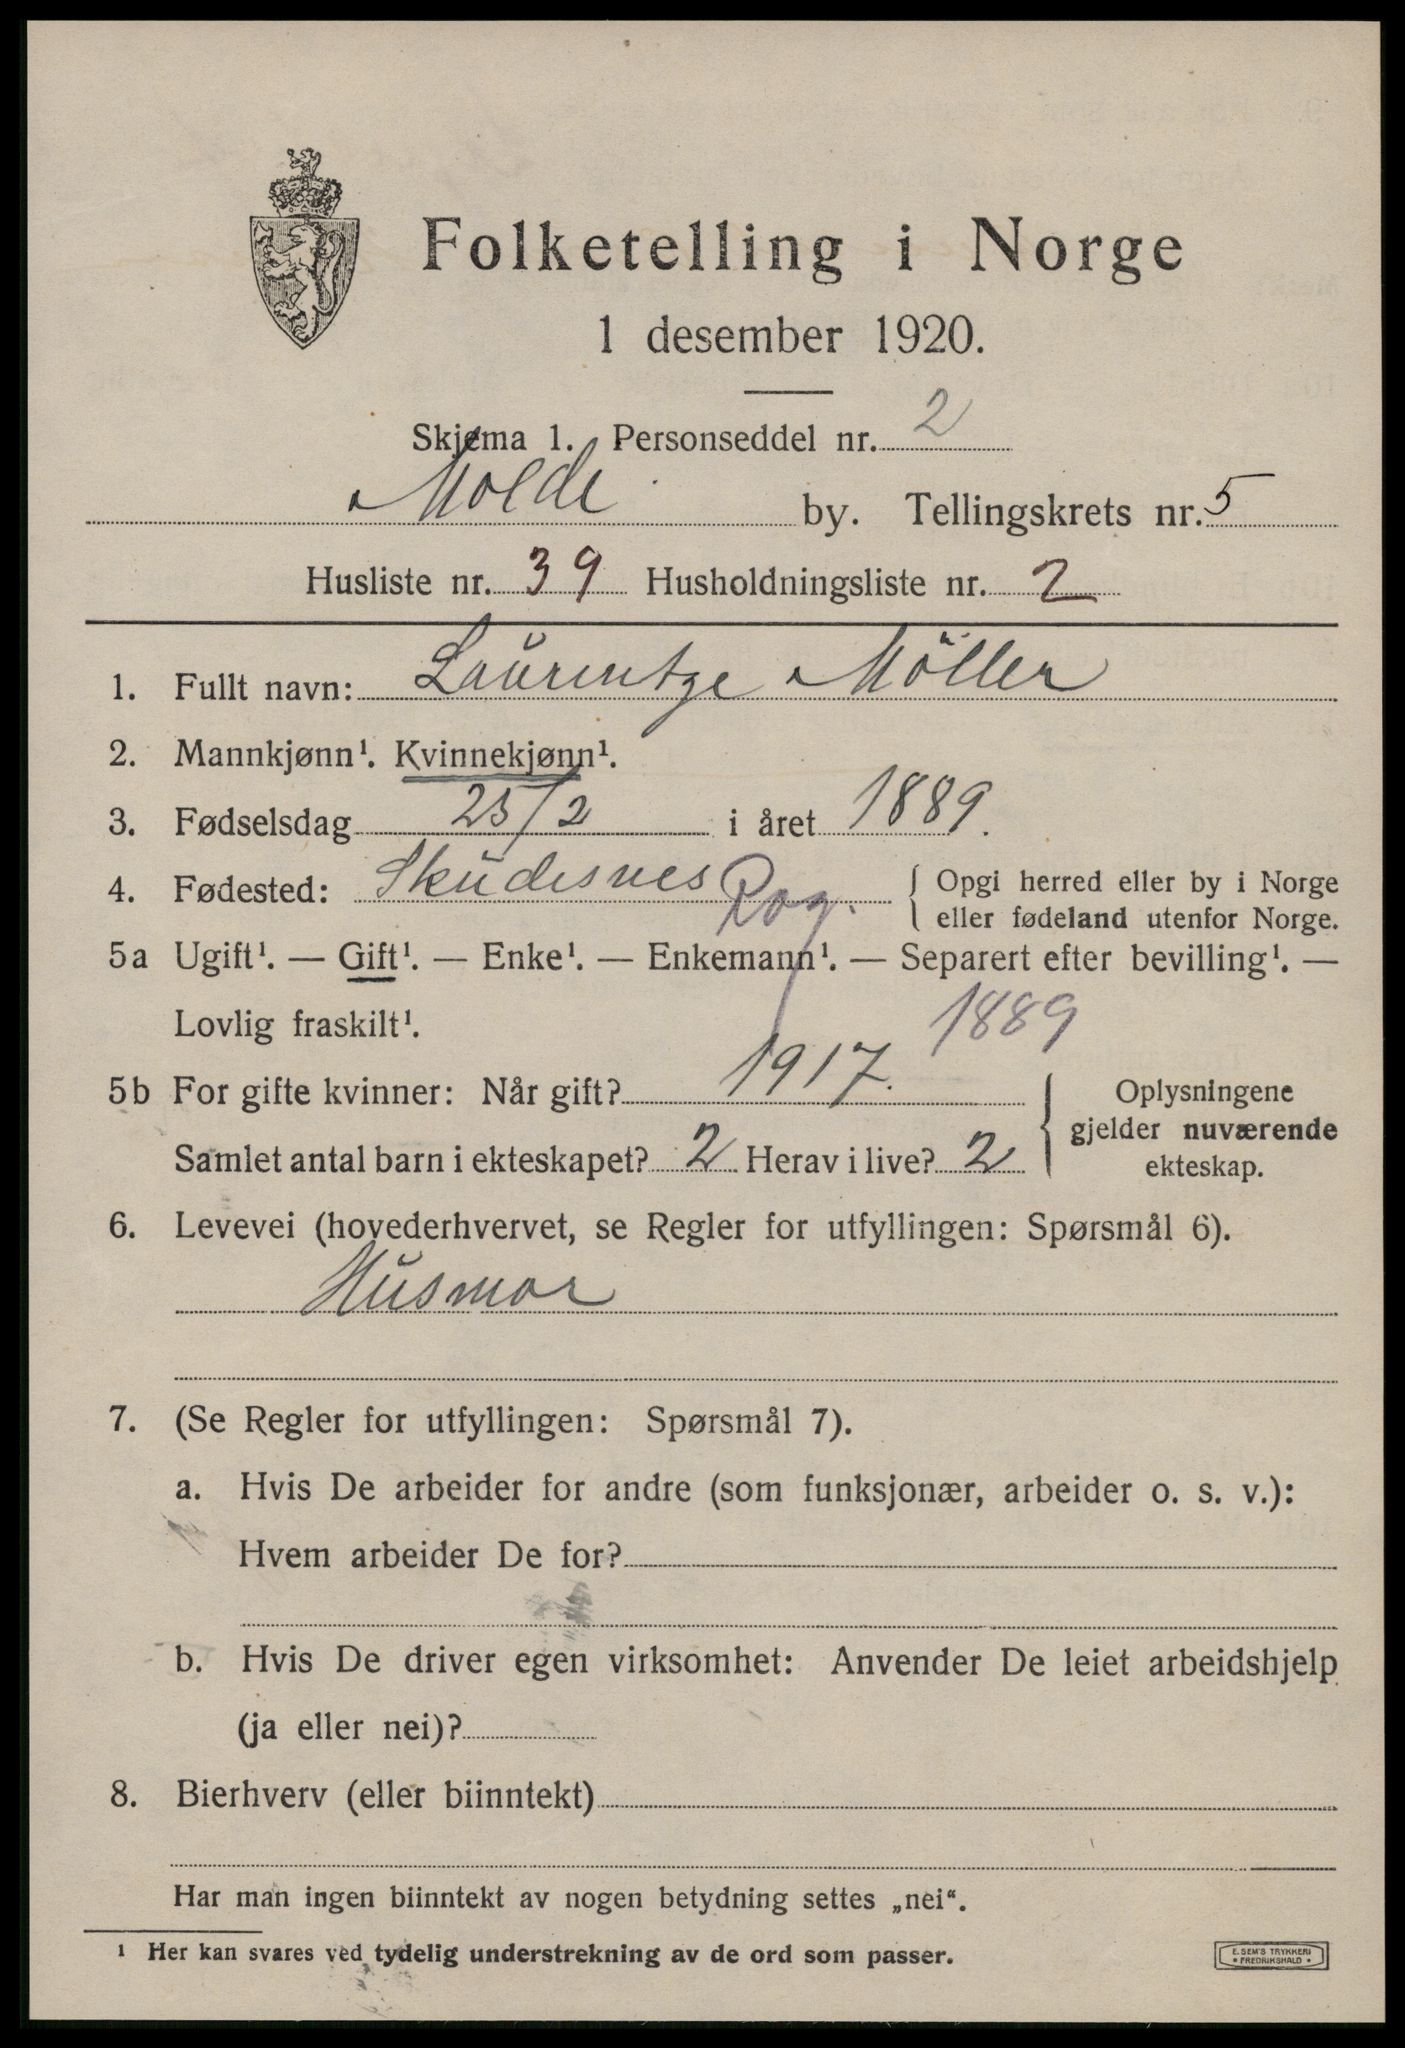 Folketelling i Norge
1 desember 1920.
Skjema 1. Personseddel nr. 2
Molde by. Tellingskrets nr. 5
Husliste nr. 39 Husholdningsliste nr. 2
1. Fullt navn: Laurentze Möller
2. Mannkjønn¹. Kvinnekjønn¹.
3. Fødselsdag 25/2 i året 1889.
4. Fødested: Skudesnes Rog. { Opgi herred eller by i Norge
eller fødeland utenfor Norge.
5a Ugift¹. — Gift¹. — Enke¹. — Enkemann¹. — Separert efter bevilling¹. —
Lovlig fraskilt¹.
1889
5b For gifte kvinner: Når gift? 1917. Oplysningene
gjelder nuværende
Samlet antal barn i ekteskapet? 2 Herav i live? 2 ekteskap.
6. Levevei (hovederhvervet, se Regler for utfyllingen: Spørsmål 6).
Husmor
7. (Se Regler for utfyllingen: Spørsmål 7).
a. Hvis De arbeider for andre (som funksjonær, arbeider o. s. v.):
Hvem arbeider De for?
b. Hvis De driver egen virksomhet: Anvender De leiet arbeidshjelp
(ja eller nei)?
8. Bierhverv (eller biinntekt)
Har man ingen biinntekt av nogen betydning settes „nei“.
¹ Her kan svares ved tydelig understrekning av de ord som passer.
E. SEM'S TRYKKERI
* FREDRIKSHALD *